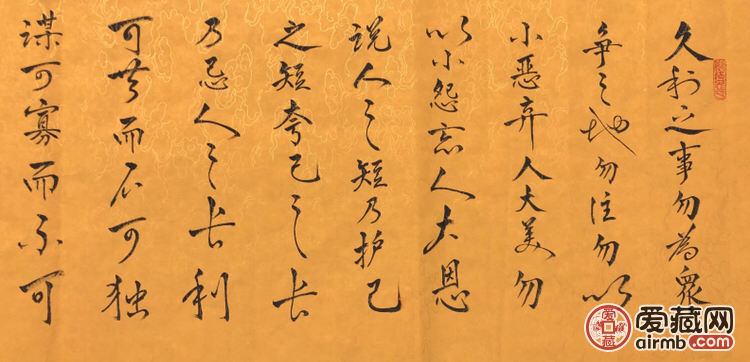 久利之事勿为衆
争之地勿往勿以
小恶弃人大美勿
以小怨忘人大恩
说人之短乃护己
之短夸己之长
乃忌人之长利
可共而不可独
谋可寡而不可
爱藏网
airmb.com